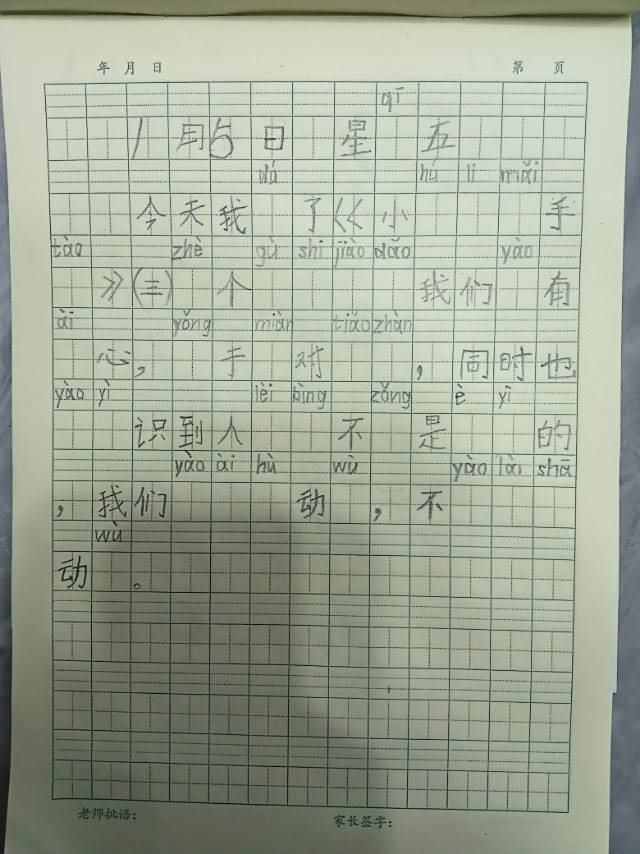 年 月 日 第 页
qī
1月5日星 五
dú hú li mǎi
今天我 了《小 手
tào zhè gù shi jiào dǎo yào
》(三) 个 我们 有
ài yǒng miàn tiǎo zhàn
心, 手 对 , 同时也
yào yì lèi bìng zǒng è yì
识到人 不 是 的
yào ài hù wù yào lài shā
, 我们 动 , 不
wù
动 。
老师批语: 家长签字: